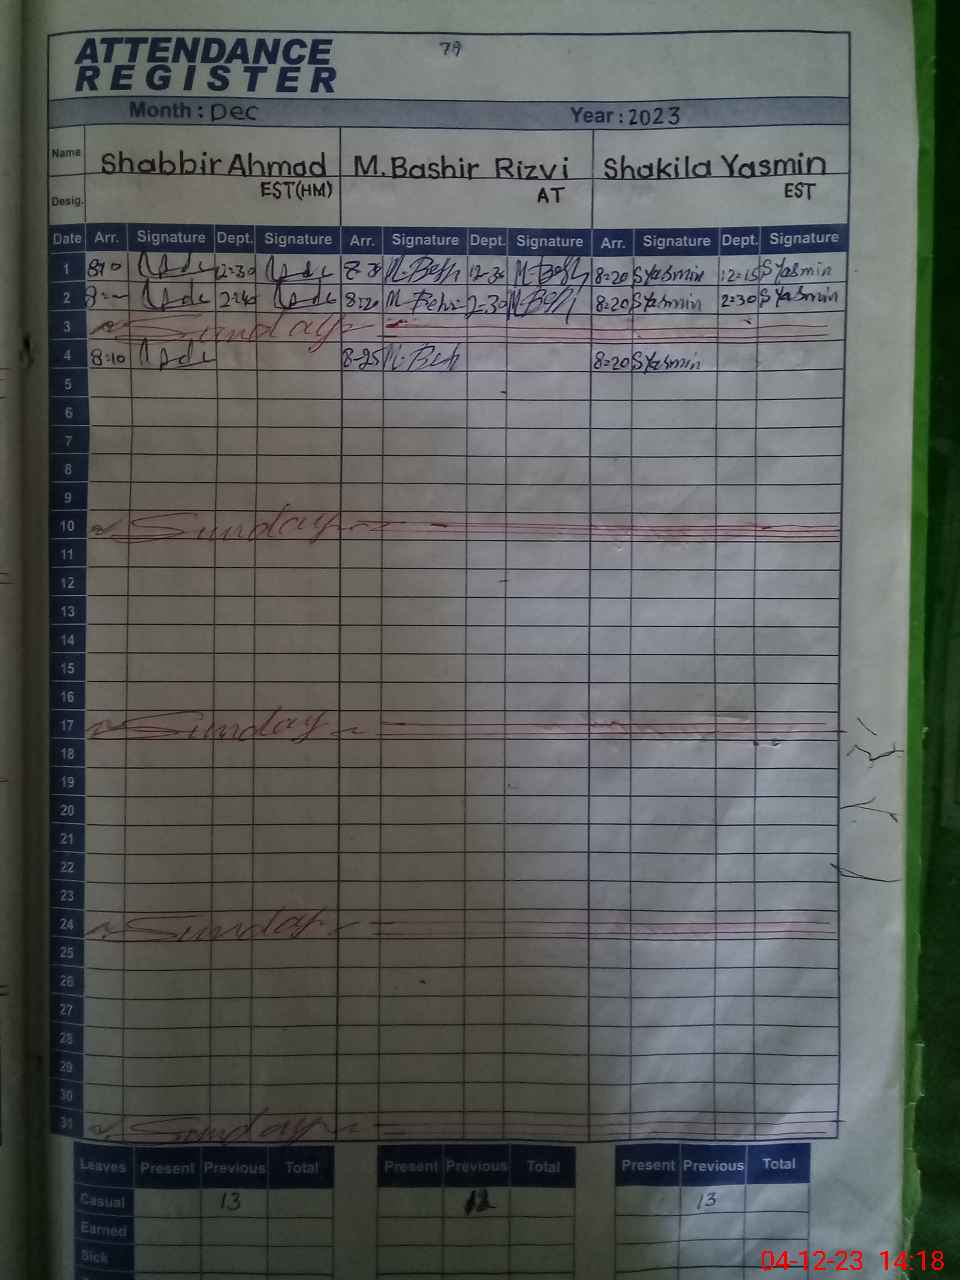 79
ATTENDANCE
REGISTER
Month : Dec Year : 2023
Name Shabbir Ahmad M.Bashir Rizvi Shakila Yasmin
Desig. EST(HM) AT EST
Date Arr. Signature Dept. Signature Arr. Signature Dept. Signature Arr. Signature Dept. Signature
1 12=30 12-30 8=20 SYasmin 12=15 SYasmin
2 2=40 8=20 2=30 8=20 SYasmin 2=30 SYasmin
3 Sunday
4 8=10 8-25 8=20 SYasmin
5
6
7
8
9
10 Sunday
11
12
13
14
15
16
17 Sunday
18
19
20
21
22
23
24 Sunday
25
26
27
28
29
30
31 Sunday
Leaves Present Previous Total Present Previous Total Present Previous Total
Casual 13 12 13
Earned
Sick
04-12-23 14:18